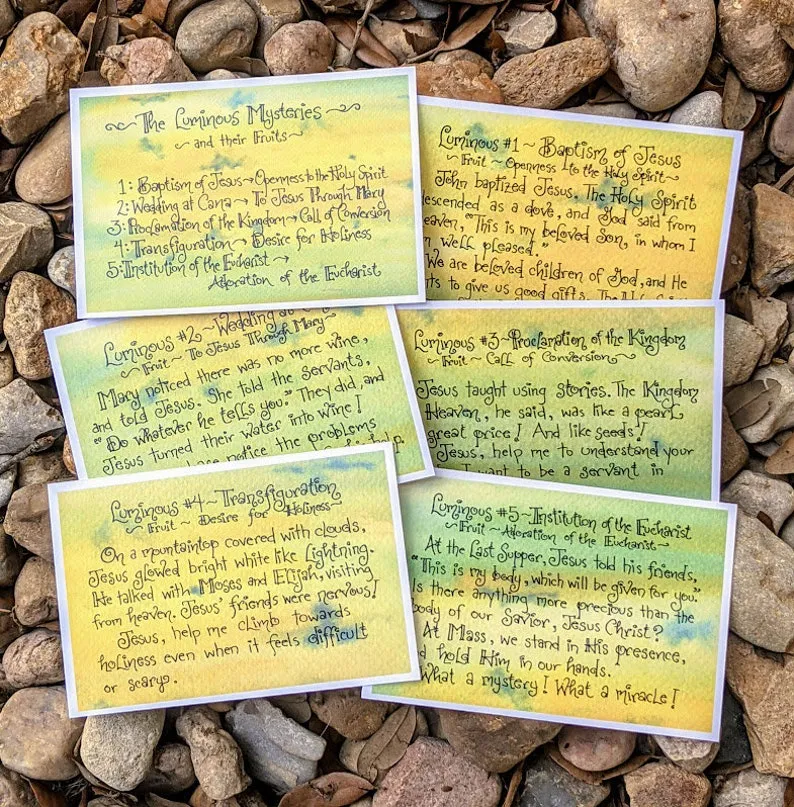 The Luminous Mysteries
~ and their Fruits ~
1: Baptism of Jesus → Openness to the Holy Spirit
2: Wedding at Cana → To Jesus Through Mary
3: Proclamation of the Kingdom → Call of Conversion
4: Transfiguration → Desire for Holiness
5: Institution of the Eucharist →
Adoration of the Eucharist
Luminous #1 ~ Baptism of Jesus
~ Fruit ~ Openness to the Holy Spirit ~
John baptized Jesus. The Holy Spirit
descended as a dove, and God said from
heaven, "This is my beloved Son, in whom I
well pleased."
We are beloved children of God, and He
to give us good gifts. The Holy
Luminous #2 ~ Wedding at
~ Fruit ~ To Jesus Through Mary ~
Mary noticed there was no more wine,
and told Jesus. She told the servants,
"Do whatever he tells you." They did, and
Jesus turned their water into wine!
notice the problems
help
Luminous #3 ~ Proclamation of the Kingdom
~ Fruit ~ Call of Conversion ~
Jesus taught using stories. The Kingdom
Heaven, he said, was like a pearl
great price! And like seeds!
Jesus, help me to understand your
I want to be a servant in
Luminous #4 ~ Transfiguration
~ Fruit ~ Desire for Holiness ~
On a mountaintop covered with clouds,
Jesus glowed bright white like lightning.
He talked with Moses and Elijah, visiting
from heaven. Jesus' friends were nervous!
Jesus, help me climb towards
holiness even when it feels difficult
or scary.
Luminous #5 ~ Institution of the Eucharist
~ Fruit ~ Adoration of the Eucharist ~
At the Last Supper, Jesus told his friends,
"This is my body, which will be given for you."
Is there anything more precious than the
body of our Savior, Jesus Christ?
At Mass, we stand in His presence,
hold Him in our hands.
What a mystery! What a miracle!